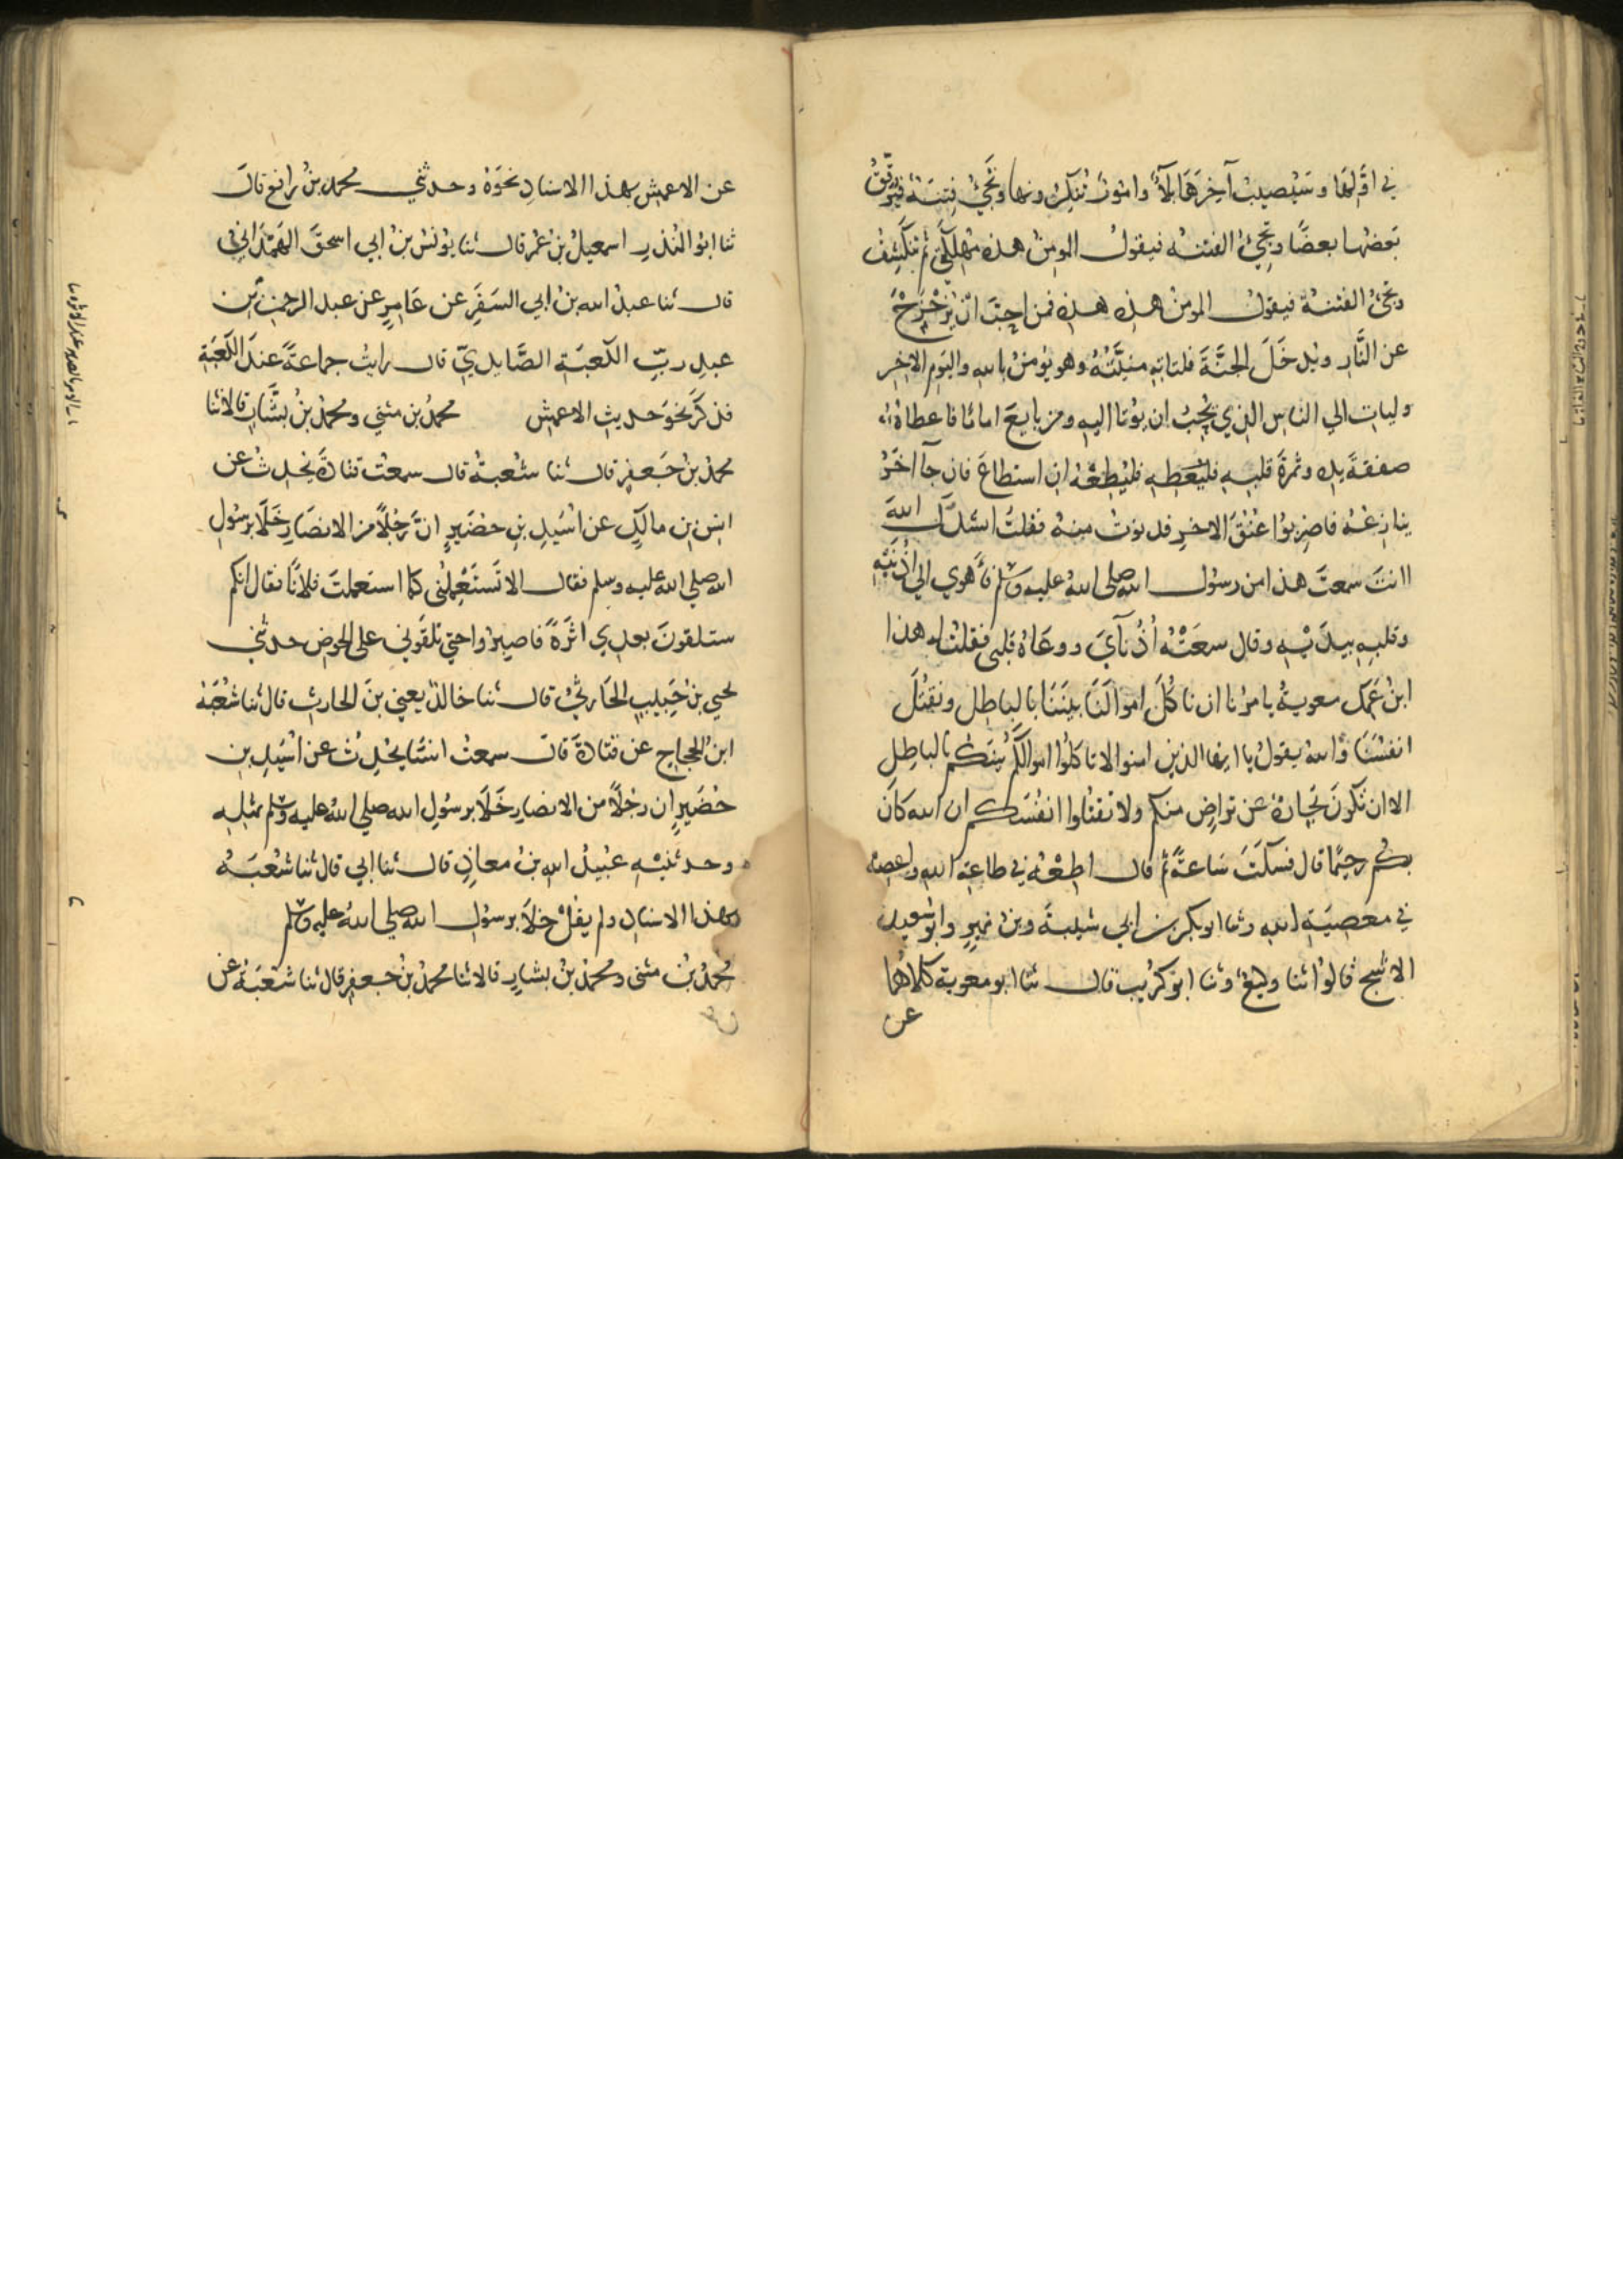 في اولها وسيصيب آخرها بلاء وامور تنكرونها وتجئ فتنة فيرقق
بعضها بعضا وتجئ الفتنه فيقول المومن هذه مهلكتي ثم تنكشف
وتجئ الفتنة فيقول المومن هذه هذه فمن احب ان يزحزح
عن النار ويدخل الجنة فلتاته منيته وهو يومن بالله واليوم الاخر
وليات الي الناس الذي يحب ان يوتا اليه ومن بايع اماما فاعطاه
صفقة يده وثمرة قلبه فليطعه ان استطاع فان جا اخر
ينازعه فاضربوا عنق الاخر فدنوت منه فقلت انشدك الله
اانت سمعت هذا من رسول الله صلى الله عليه وسلم فاهوي الي اذنيه
وقلبه بيديه وقال سمعته اذناي ووعاه قلبي فقلت له هذا
ابن عمك معوية يامرنا ان ناكل اموالنا بيننا بالباطل ونقتل
انفسنا والله يقول يا ايها الذين امنوا لا تاكلوا اموالكم بينكم بالباطل
الا ان تكون تجارة عن تراض منكم ولا تقتلوا انفسكم ان الله كان
بكم رحيما قال فسكت ساعة ثم قال اطعه في طاعة الله واعصه
في معصية الله وثنا ابو بكر بن ابي شيبة وبن نمير وابو سعيد
الاشج قالوا ثنا وكيع وثنا ابو كريب قال ثنا ابو معوية كلاهما
عن
عن الاعمش بهذا الاسناد نحوه وحدثني محمد بن رافع قال
ثنا ابو المنذر اسمعيل بن عمر قال ثنا يونس بن ابي اسحق الهمداني
قال ثنا عبد الله بن ابي السفر عن عامر عن عبد الرحمن بن
عبد رب الكعبة الصايدي قال رايت جماعة عند الكعبة
فذكر نحو حديث الاعمش محمد بن مثني ومحمد بن بشار قالا ثنا
محمد بن جعفر قال ثنا شعبة قال سمعت قتادة يحدث عن
انس بن مالك عن اسيد بن حضير ان رجلا من الانصار خلا برسول
الله صلي الله عليه وسلم فقال الا تستعملني كما استعملت فلانا فقال انكم
ستلقون بعدي اثرة فاصبروا حتي تلقوني على الحوض حدثني
يحيي بن حبيب الحارثي قال ثنا خالد يعني بن الحارث قال ثنا شعبة
ابن الحجاج عن قتادة قال سمعت انسا يحدث عن اسيد بن
حضير ان رجلا من الانصار خلا برسول الله صلي الله عليه وسلم بمثله
وحدثنيه عبيد الله بن معاذ قال ثنا ابي قال ثنا شعبة
بهذا الاسناد ولم يقل خلا برسول الله صلى الله عليه وسلم
محمد بن مثنى ومحمد بن بشار قالا ثنا محمد بن جعفر قال ثنا شعبة عن